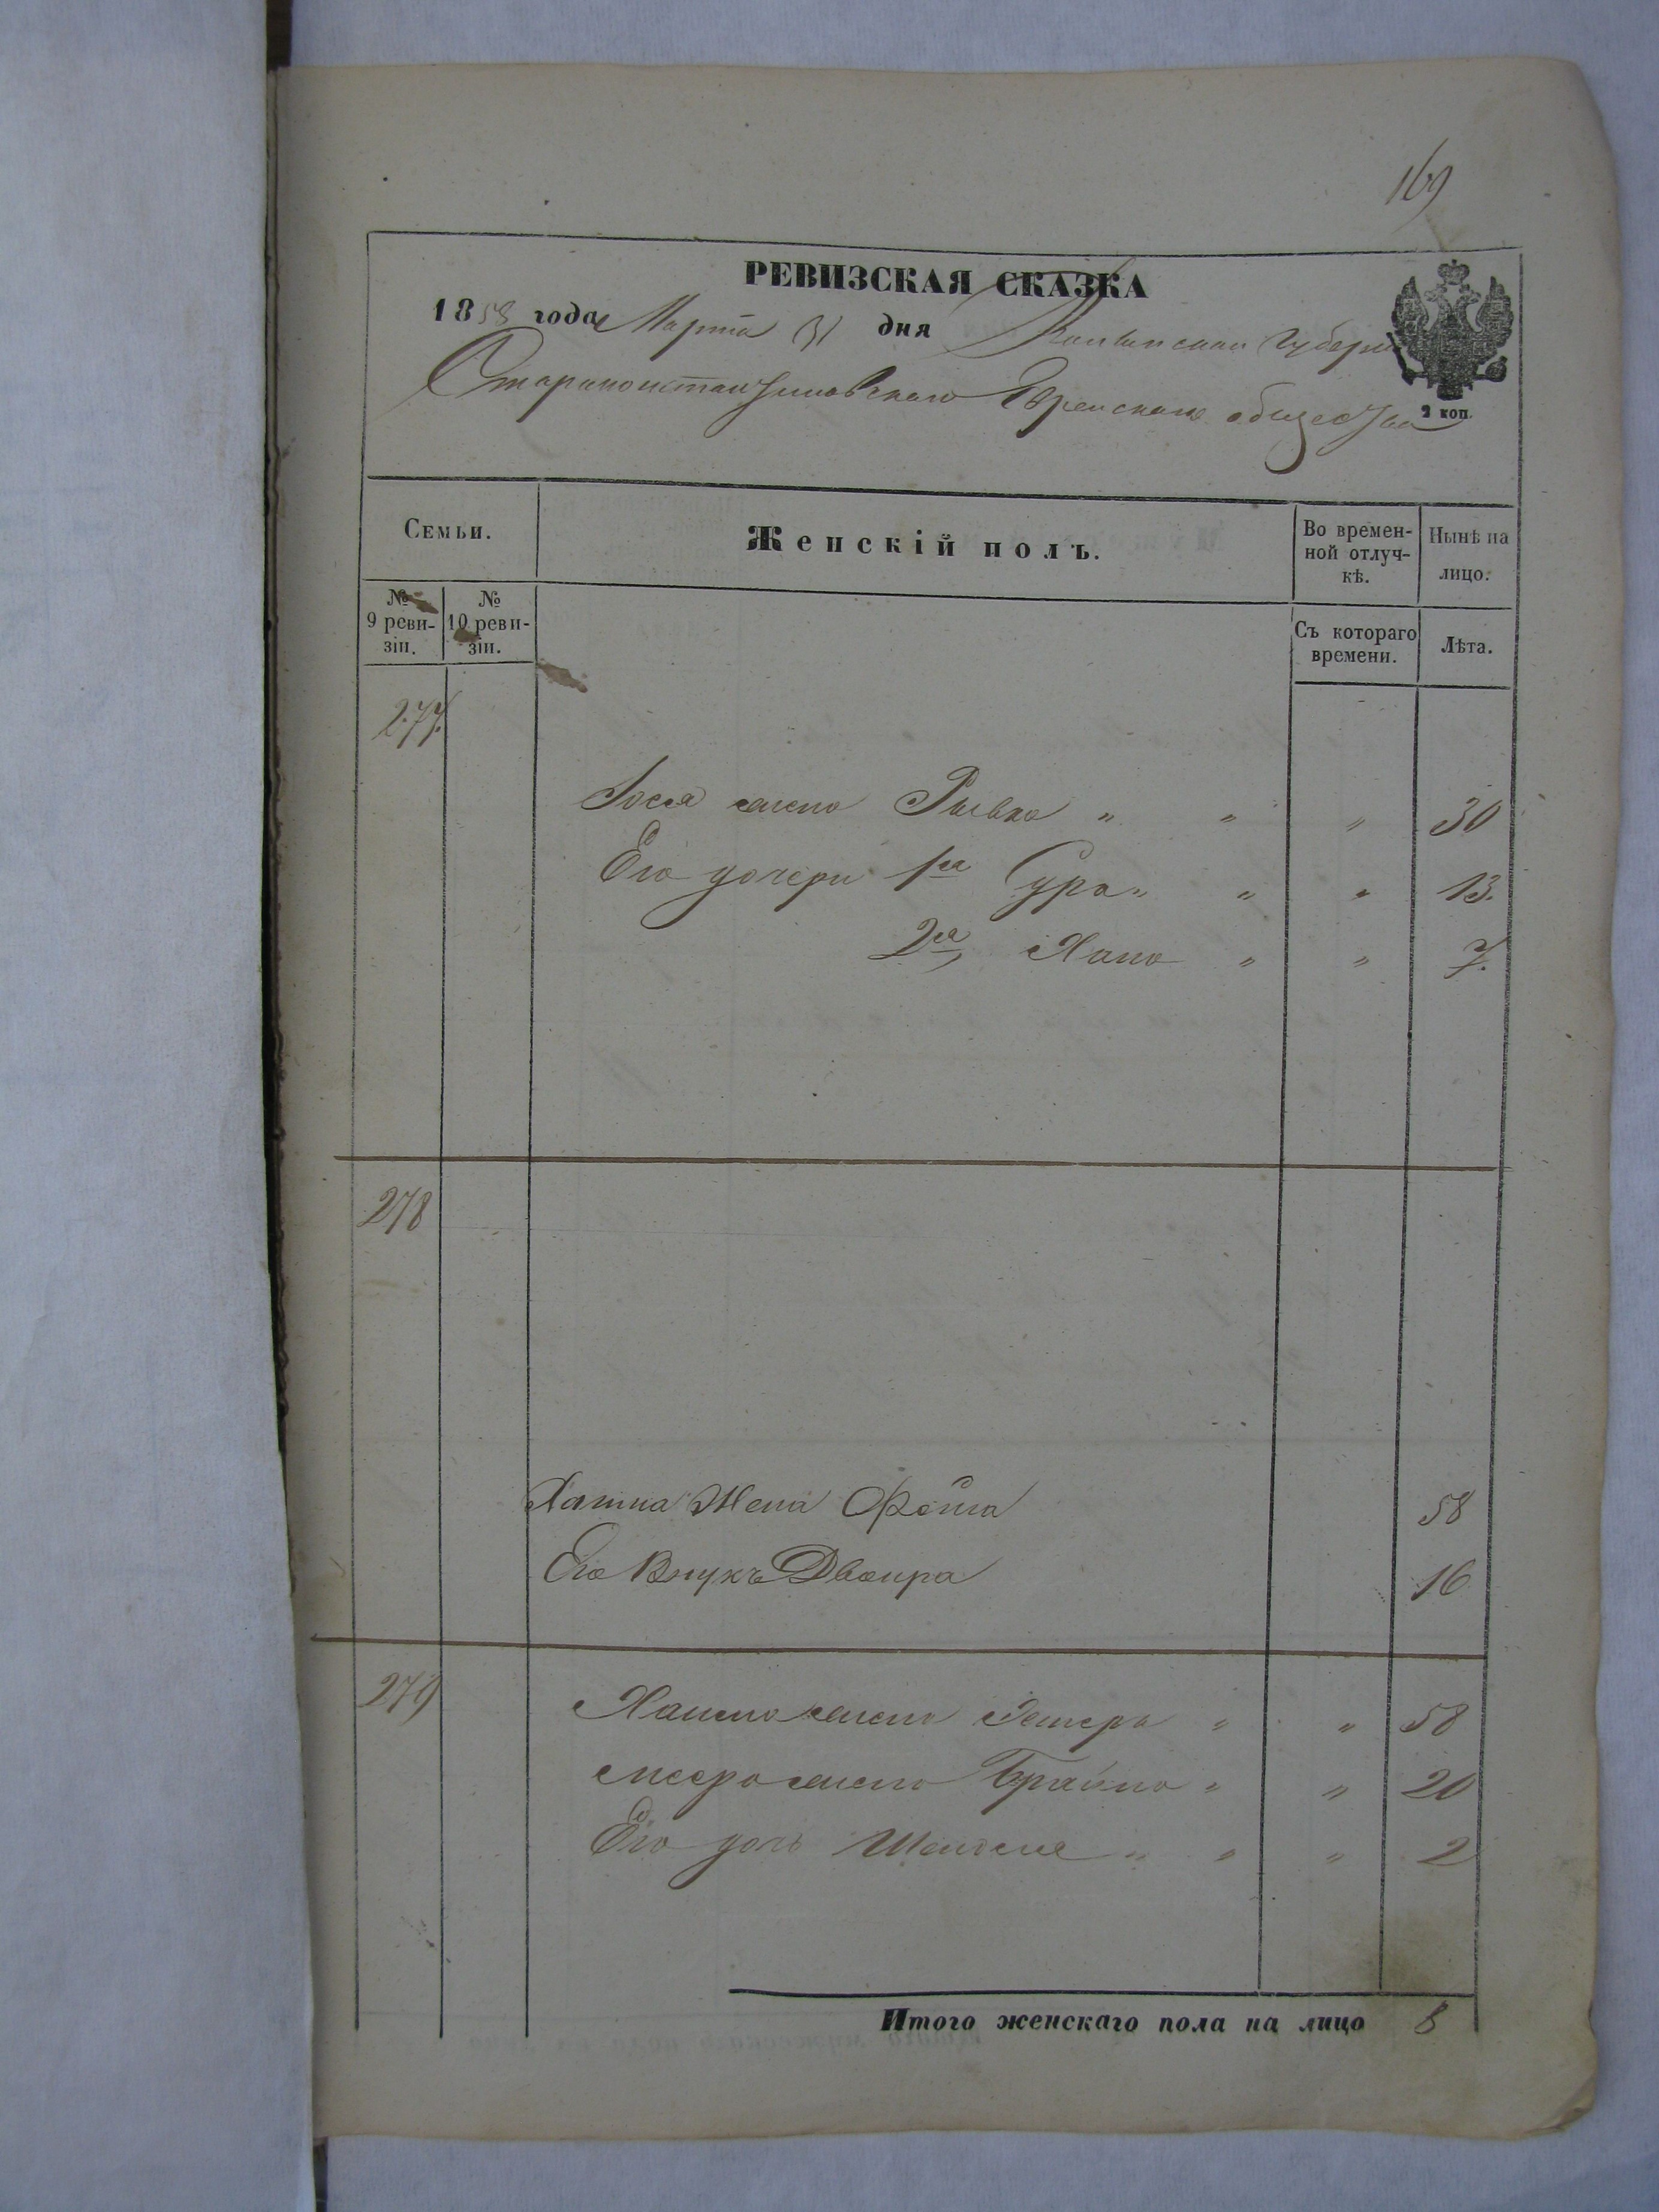 169
РЕВИЗСКАЯ СКАЗКА
1858 года Марта 31 дня Волынской Губерніи
Староконстантиновскаго Еврейскаго общества
2 коп.
Семьи.
Женскій полъ.
Во времен-
ной отлуч-
кѣ.
Нынѣ на
лицо.
№
9 реви-
зіи.
№
10 реви-
зіи.
Съ котораго
времени.
Лѣта.
277.
Іося жена Рывка " " " 30
Его дочери 1я Сура " " " 13.
2я Хана " " 7.
278
жена Фейга 58
Его Внукъ Двойра 16
279
Хаима жена Эстеръ " " 58
жена Брайна " " 20
Его дочь Шейндля " " " 2
Итого женскаго пола на лицо 8